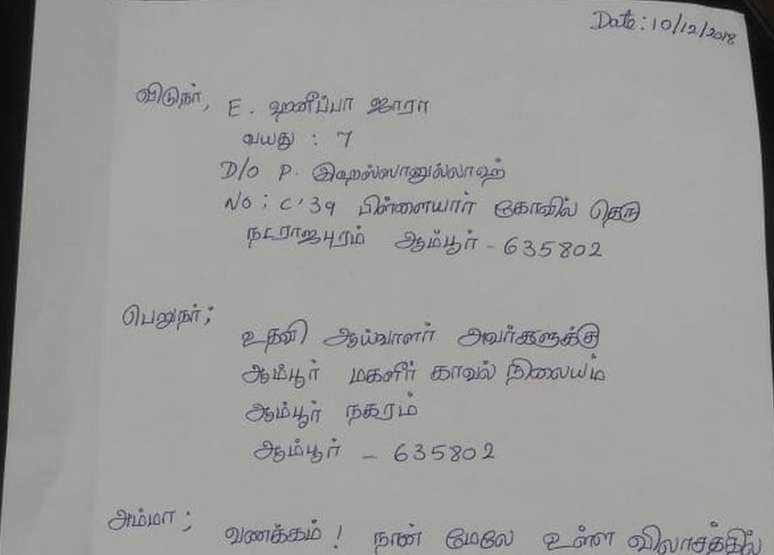 Date: 10/12/2018
விடுநர், E. ஹனீப்பா ஜாரா
வயது : 7
D/O P. இஹஸ்ஸானுல்லாஹ்
NO; C'39 பிள்ளையார் கோவில் தெரு
நடராஜபுரம் ஆம்பூர் - 635802
பெறுநர்;
உதவி ஆய்வாளர் அவர்களுக்கு
ஆம்பூர் மகளிர் காவல் நிலையம்
ஆம்பூர் நகரம்
ஆம்பூர் - 635802
அம்மா; வணக்கம்! நான் மேலே உள்ள விலாசத்தில்